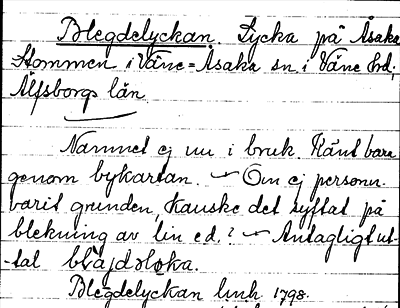 Blegdelyckan. Lycka på Åsaka
Stommen i Väne=Åsaka sn i Väne hd,
Älfsborgs län
Namnet ej nu i bruk. Känt bara
genom bykartan. – Om ej personn.
varit grunden, kanske det syftat på
blekning av lin e.d.? – Antagligt ut-
-tal
Blegdelyckan lmh 1798.